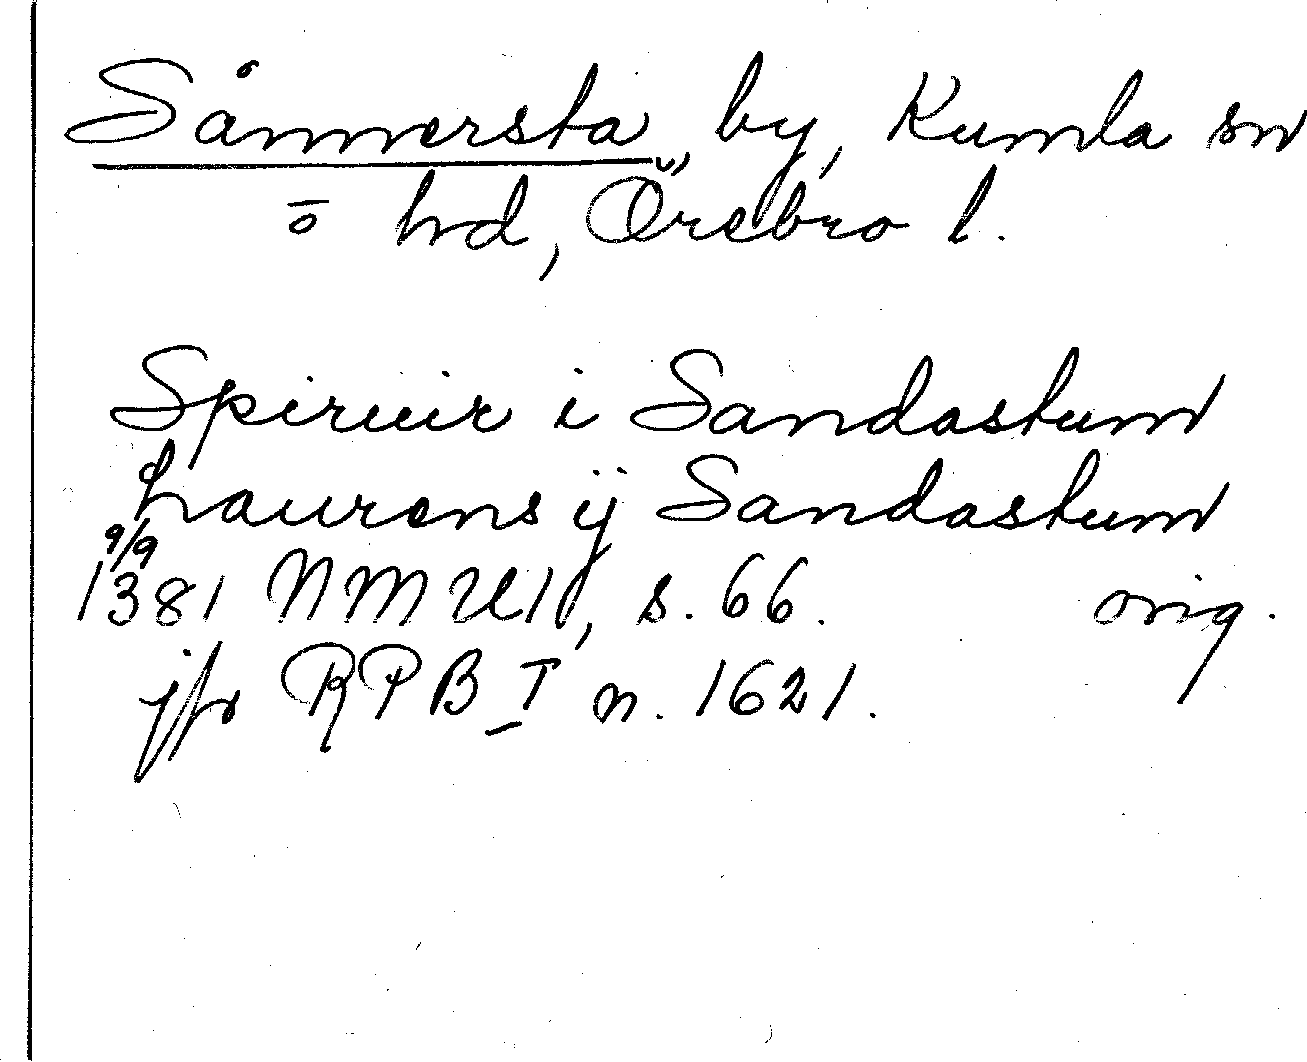 Sånnersta, by, Kumla sn
o hd, Örebro l.
i Sandastum
Laurens ij Sandastum
9/9
1381 NMU1, s. 66. orig.
jfr RPB I n. 1621.